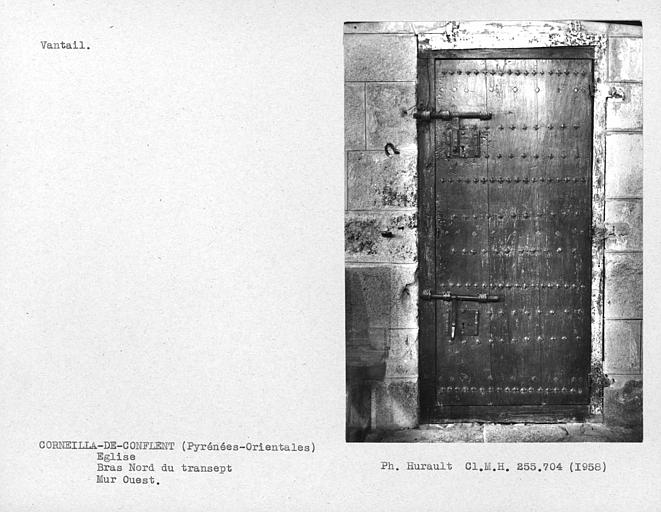 Vantail.
CORNEILLA-DE-CONFLENT (Pyrénées-Orientales)
Eglise
Bras Nord du transept
Mur Ouest.
Ph. Hurault Cl.M.H. 255.704 (I958)